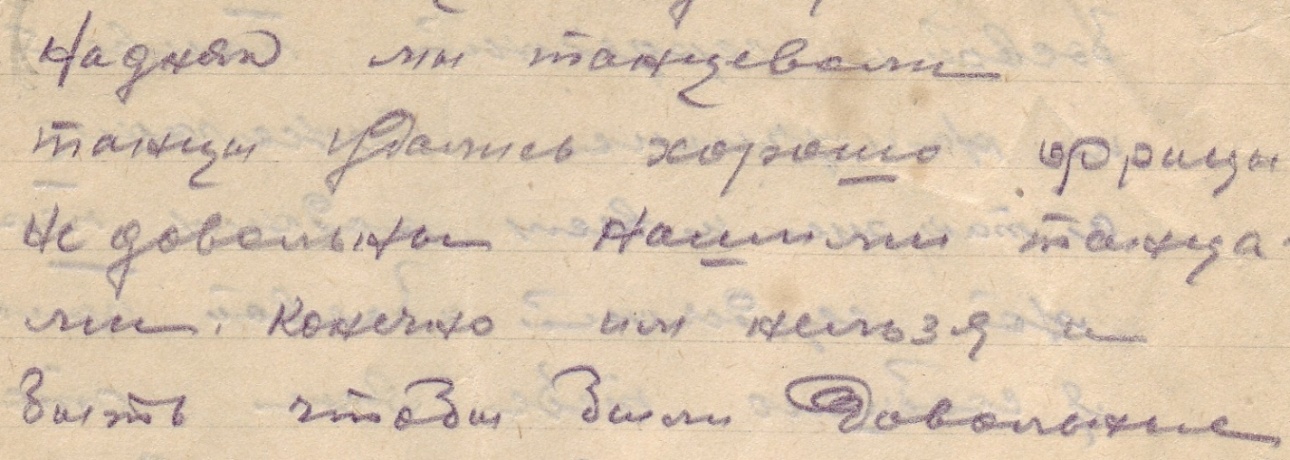 Наднях мы танцевали
танцы удались хорошо фрицы
не довольны нашими танца-
ми. конечно им нельзя и
быть чтобы были довольные